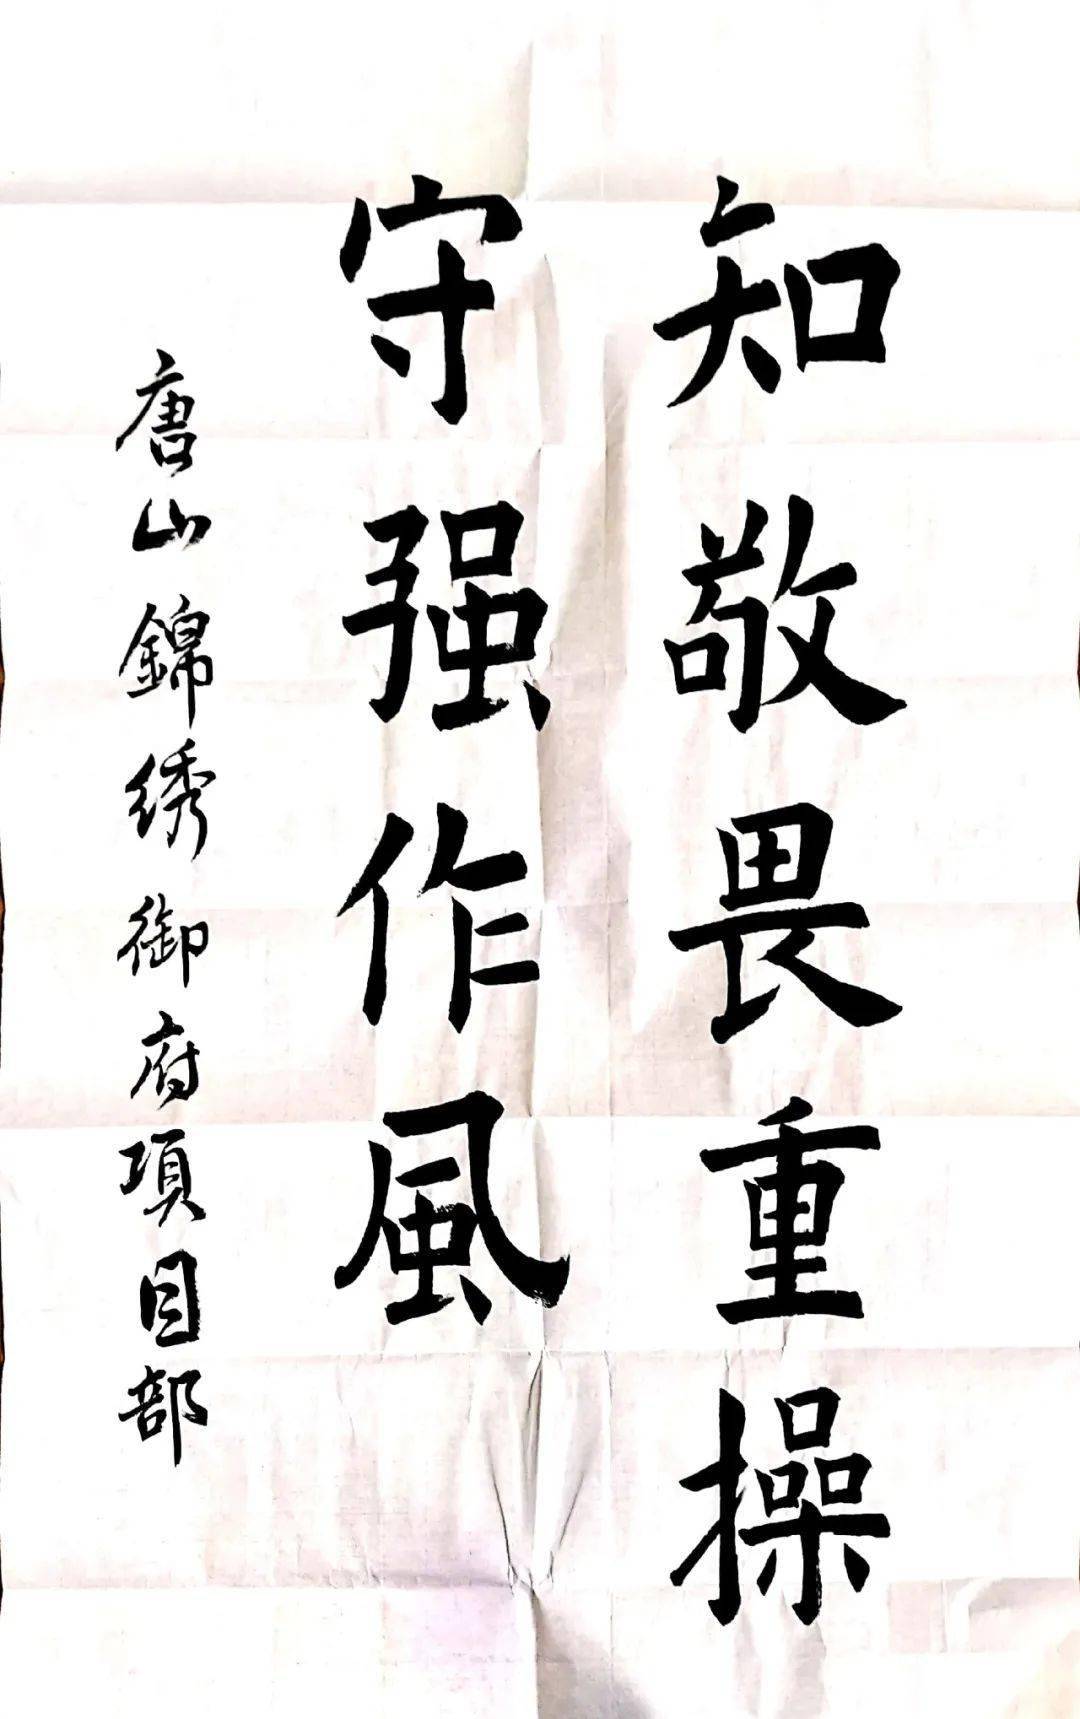 知敬畏重操
守强作風
唐山錦绣御府項目部